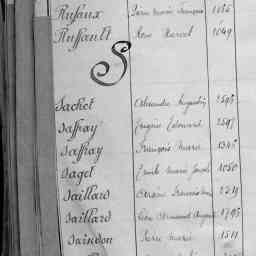 Rufaux Pierre Marie François 1036
Ruffault René Marcel 1049
S
Sachet Alexandre Augustin 2595
Saffray Eugène Edouard 2597
Saffray François Marie 1345
Sagel Emile Marie Joseph 1050
Saillard
Saillard Armand Auguste 1795
Saindon Pierre Marie 1511